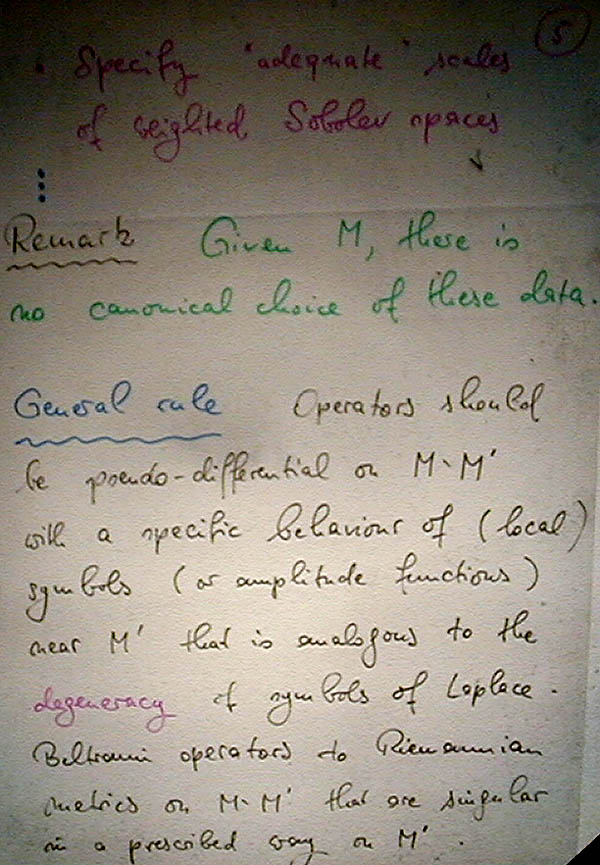 5
• Specify "adequate" scales
of weighted Sobolev spaces
⋮
Remark Given M, there is
no canonical choice of these data.
General rule Operators should
be pseudo-differential on M∖M′
with a specific behaviour of (local)
symbols (or amplitude functions)
near M′ that is analogous to the
degeneracy of symbols of Laplace-
Beltrami operators to Riemannian
metrics on M∖M′ that are singular
in a prescribed way on M′.